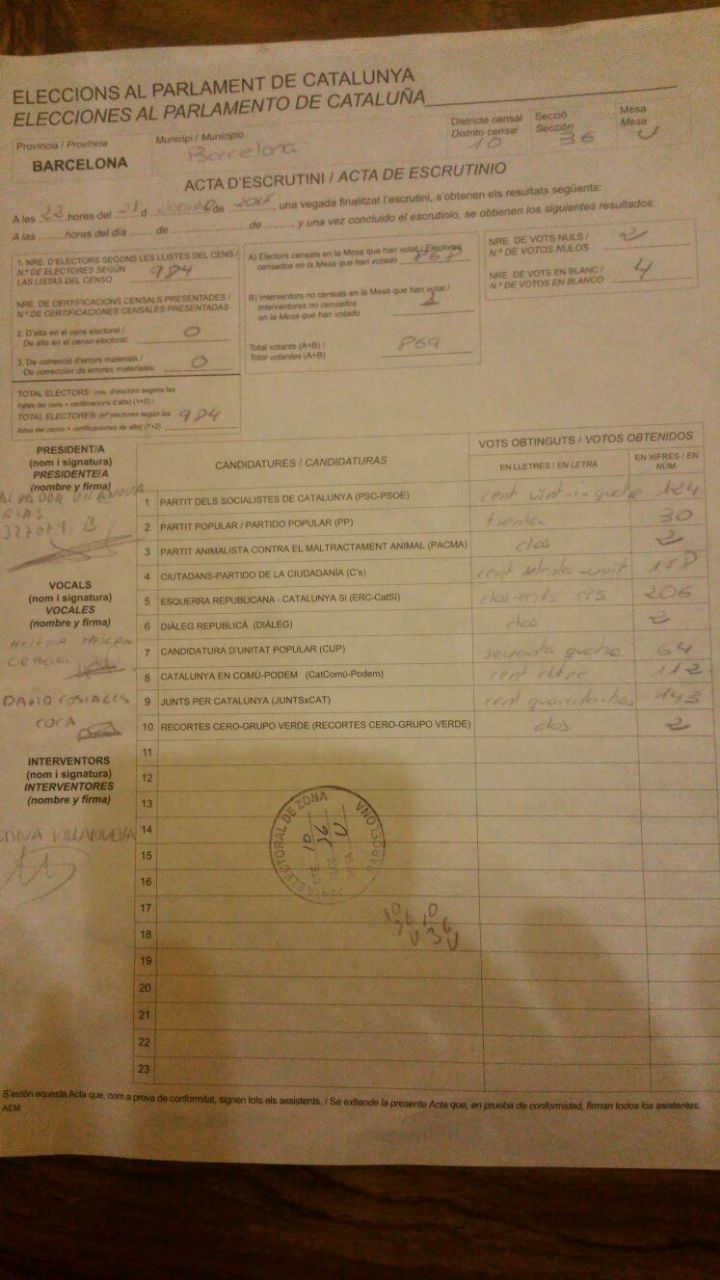 ELECCIONS AL PARLAMENT DE CATALUNYA
ELECCIONES AL PARLAMENTO DE CATALUÑA
Província / Provincia
BARCELONA
Municipi / Municipio
Barcelona
Districte censal
Distrito censal
10
Secció
Sección
36
Mesa
Mesa
U
ACTA D'ESCRUTINI / ACTA DE ESCRUTINIO
A les 22 hores del 21 d de una vegada finalitzat l'escrutini, s'obtenen els resultats següents:
A las horas del día de de , y una vez concluido el escrutinio, se obtienen los siguientes resultados:
1. NRE. D'ELECTORS SEGONS LES LLISTES DEL CENS /
N.º DE ELECTORES SEGÚN
LAS LISTAS DEL CENSO 984
NRE. DE CERTIFICACIONS CENSALS PRESENTADES /
N.º DE CERTIFICACIONES CENSALES PRESENTADAS
2. D'alta en el cens electoral /
De alta en el censo electoral: 0
3. De correcció d'errors materials /
De corrección de errores materiales: 0
TOTAL ELECTORS: (nre. d'electors segons les
llistes del cens + certificacions d'alta) (1+2) /
TOTAL ELECTORES: (nº electores según las
listas del censo + certificaciones de alta) (1+2) 984
A) Electors censats en la Mesa que han votat / Electores
censados en la Mesa que han votado 868
B) Interventors no censats en la Mesa que han votat /
Interventores no censados
en la Mesa que han votado 1
Total votants (A+B) /
Total votantes (A+B) 869
NRE. DE VOTS NULS /
N.º DE VOTOS NULOS 2
NRE. DE VOTS EN BLANC /
N.º DE VOTOS EN BLANCO 4
PRESIDENT/A
(nom i signatura)
PRESIDENTE/A
(nombre y firma)
VOCALS
(nom i signatura)
VOCALES
(nombre y firma)
DAVID
INTERVENTORS
(nom i signatura)
INTERVENTORES
(nombre y firma)
VILLANUEVA
CANDIDATURES / CANDIDATURAS
VOTS OBTINGUTS / VOTOS OBTENIDOS
EN LLETRES / EN LETRA
EN XIFRES / EN NÚM.
1 PARTIT DELS SOCIALISTES DE CATALUNYA (PSC-PSOE) cent vint-i-quatre 124
2 PARTIT POPULAR / PARTIDO POPULAR (PP) trenta 30
3 PARTIT ANIMALISTA CONTRA EL MALTRACTAMENT ANIMAL (PACMA) dos 2
4 CIUTADANS-PARTIDO DE LA CIUDADANÍA (C's) cent setanta-vuit 178
5 ESQUERRA REPUBLICANA - CATALUNYA SÍ (ERC-CatSí) dos-cents sis 206
6 DIÀLEG REPUBLICÀ (DIÀLEG) dos 2
7 CANDIDATURA D'UNITAT POPULAR (CUP) seixanta quatre 64
8 CATALUNYA EN COMÚ-PODEM (CatComú-Podem) cent dotze 112
9 JUNTS PER CATALUNYA (JUNTSxCAT) cent quaranta-tres 143
10 RECORTES CERO-GRUPO VERDE (RECORTES CERO-GRUPO VERDE) dos 2
11
12
13
14
15
16
17
18
19
20
21
22
23
ELECTORAL DE ZONA
BARCELONA
10
36
U
10 10
36 36
U U
S'estén aquesta Acta que, com a prova de conformitat, signen tots els assistents. / Se extiende la presente Acta que, en prueba de conformidad, firman todos los asistentes.
AEM